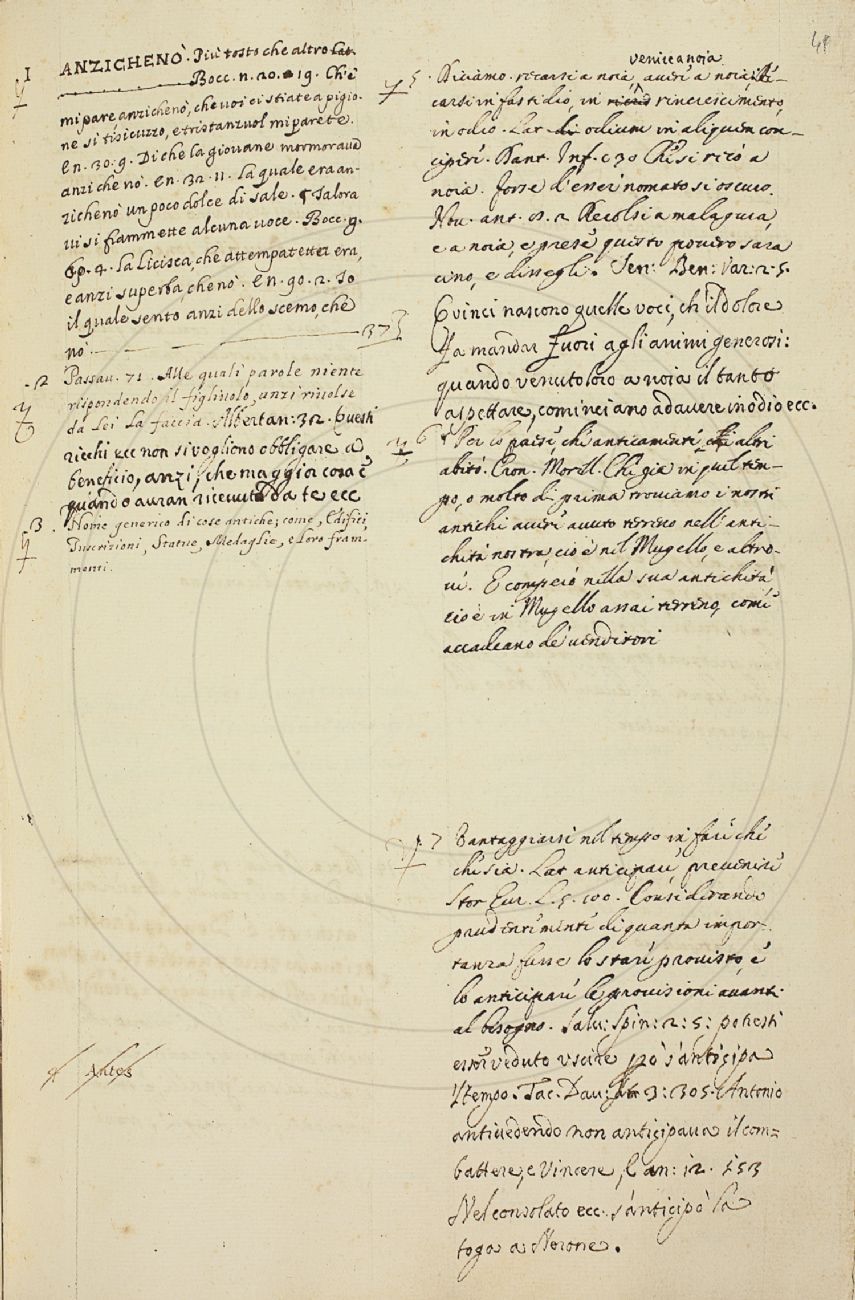 41
1 ANZICHENÒ. Più tosto che altro Lat.
Bocc. n. 20. 19. Ch'è
mi pare anzichenò, che voi ci stiate a pigio-
ne sì tisicuzzo, e tristanzuol mi parete.
En. 30. 9. Di che la giovane mormorava
anzi che nò. En. 32. 11. La quale era an-
zichenò un poco dolce di sale. ¶ Talora
vi si frammette alcuna voce. Bocc. g.
6p. 4. La Licisca, che attempatetta era,
e anzi superba, che nò. En. 90. 2. Io
il quale sento anzi dello scemo, che
nò. 37
2 Passau. 71. Alle quali parole niente
rispondendo il figliuolo, anzi rivolse
da Lei la faccia. Albertan: 32. Questi
ricchi ecc non si vogliono obbligare a
beneficio, anzi, che maggior cosa è
quando auran ricevuta da te ecc
3. Nome generico di cose antiche; come, Edifici,
Inscrizioni, Statue, Medaglie, e loro fram-
menti.
Antes
venire a noia
5. Diciamo recarsi a noia, averi a noia,
carsi in fastidio, in rincrescimento,
in odio. Lat. odium in aliquem con-
ciperi. Dant. Inf. c 30 Chi si recò a
noia. Forse d'esser nomato si oscuro.
Nov. ant. 2 Recolsi a malagura,
e a noia, e prese questo povero sara
cino, e dissegli. Sen: Ben: Var: 2. 5.
Quinci nascono quelle voci, ch' il dolore
Fa mandar fuori agli animi generosi:
quando venuto loro a noia il tanto
aspettare, cominciano ad avere in odio ecc.
6 Per lo paese, chi anticamente altri
abitò. Cron. Morell. Chi già in quel tem-
po, o molto di prima troviamo i nostri
antichi averi avuto terreno nell' anti-
chità nostra, cioè nel Mugello, e altro-
vi. E comperò nella sua antichità
cioè in Mugello assai terreno, come
accadeano de' venditori
7 Vantaggiarsi nel tempo in fare chi
chi sia. Lat anticipare, prevenire
Stor Eur. L. 5. 100. Considerando
prudentemente di quanta impor-
tanza fusse lo stare provisto, e
lo anticipare le provisioni avanti
al bisogno. Salu: Spin: 2: 5: potresti
esser veduto uscire però s'anticipa
'l tempo. Tac. Dav: 3: 305. Antonio
antivedendo non anticipava il com-
battere, e vincere, E an: 12. 153
Nel consolato ecc. s'anticipò la
toga a Nerone.